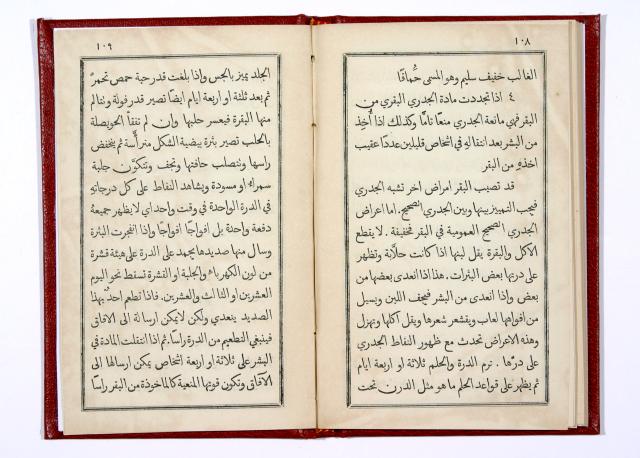 ١٠٨
الغالب خفيف سليم وهو المسمى حُماقًا
٤ اذا تجددت مادة الجدري البقري من
البقر فهي مانعة الجدري منعًا تامًّا وكذلك اذا أُخِذ
من البشر بعد انتقاله في اشخاص قليلين عددًا عقيب
اخذهِ من البقر
قد تصيب البقر امراض اخر تشبه الجدري
فيجب التمييز بينها وبين الجدري الصحيح. اما اعراض
الجدري الصحيح العمومية في البقر فخفيفة. لا يقطع
الاكل والبقرة يقل لبنها اذا كانت حلّابة وتظهر
على درتها بعض البثرات. هذا اذا انعدى بعضها من
بعض واذا انعدى من البشر فيجف اللبن ويسيل
من افواهها لعاب ويقشعر شعرها ويقل اكلها وتهزل
وهذه الاعراض تحدث مع ظهور النقاط الجدري
على درّها. ترم الدرة والحلم ثلاثة او اربعة ايام
ثم يظهر على قواعد الحلم ما هو مثل الدرن تحت
١٠٩
الجلد يميز بالجس واذا بلغت قدر حبة حمص تحمرّ
ثم بعد ثلثة او اربعة ايام ايضًا تصير قدر فولة ونتالم
منها البقرة فيعسر حلبها وان لم تفقأ الحويصلة
بالحلب تصير بثرة بيضية الشكل متراسّة ثم ينخفض
راسها وتتصلب حافتها وتجف وتتكوّن جلبة
سمراء او مسودة ويشاهد النقاط على كل درجاتهِ
في الدرة الواحدة في وقت واحد اي لا يظهر جميعهُ
دفعة واحدة بل افواجًا افواجًا واذا انفجرت البثرة
وسال منها صديدها يجمد على الدرة على هيئة قشرة
من لون الكهرباء والجلبة او القشرة تسقط نحو اليوم
العشرين او الثالث والعشرين. فاذا تطعم احدٌ بهذا
الصديد ينعدي ولكن لا يمكن ارسالهُ الى الافاق
فينبغي التطعيم من الدرة راسًا. ثم اذا انتقلت المادة في
البشر على ثلاثة او اربعة اشخاص يمكن ارسالها الى
الافاق وتكون قوتها المنعية كالماخوذة من البقر راسًا